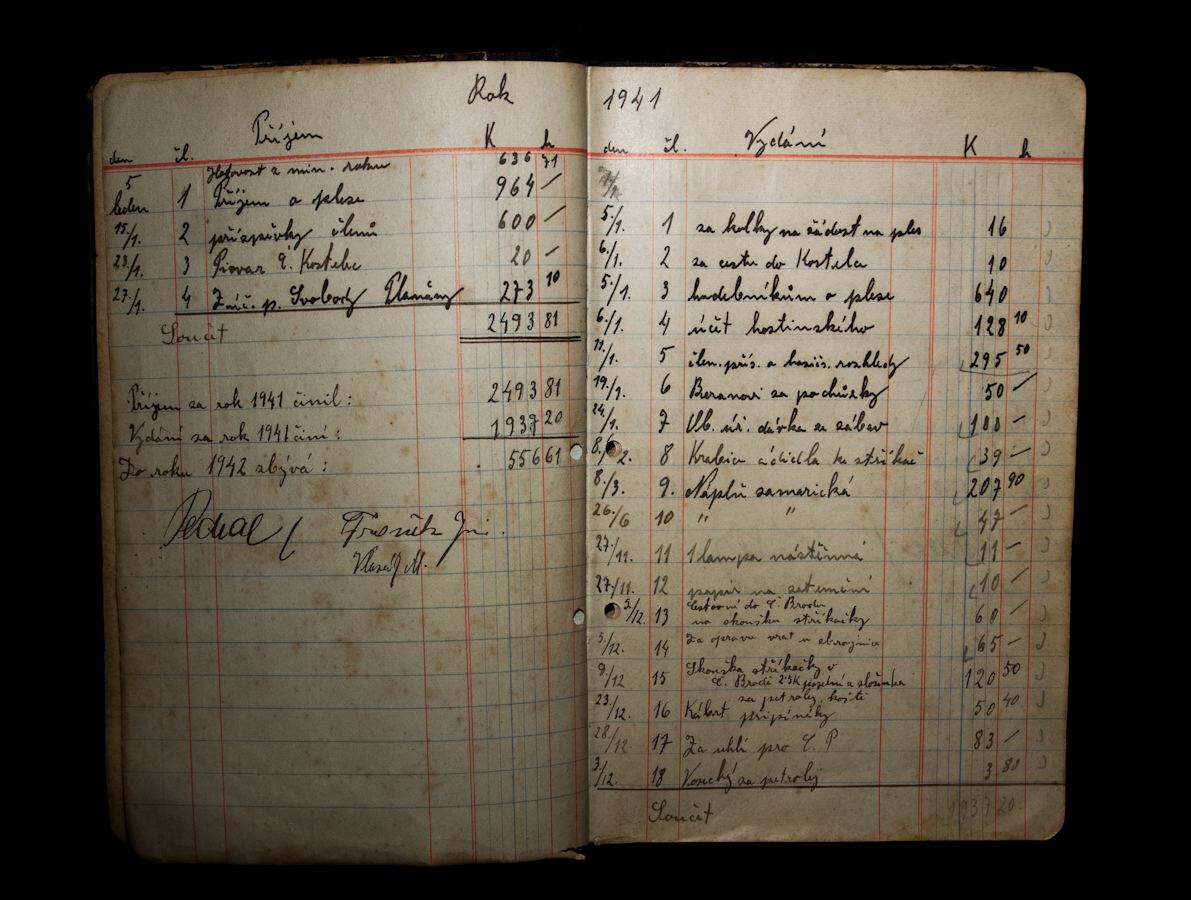 Rok
Příjem
den čl. K h
Hotovost z min. roku 636 71
5 leden 1 Příjem z plesu 964 —
15/1. 2 příspěvky členů 600 —
23/1. 3 Pivovar Č. Kostelec 20 —
27/1. 4 p. Svobody Plaňany 273 10
Součet 2493 81
Příjem za rok 1941 činil: 2493 81
Vydání za rok 1941 činí: 1937 20
Do roku 1942 zbývá: 556 61
1941
den čl. Vydání K h
5/1. 1 za kolky na žádost na ples 16
6/1. 2 za cestu do Kostelce 10
5/1. 3 hudebníkům o plese 640
6/1. 4 účet hostinského 128 10
5 člen. přís. a hasič. rozhledy 295 50
19./1. 6 Beranovi za pochůzky 50 —
24./1. 7 Ob. úř. dávka ze zábav 100 —
8 ke stříkač 39 —
8./3. 9. Náplň samarická 207 90
26./6 10 " " 47 —
27./11. 11 1 lampa nástěnná 11 —
27./11. 12 papír na zatemění 10 —
5./12. 13 Cestovní do Č. Brodu
na zkoušku stříkačky 60 —
5./12. 14 Za opravu vrat u zbrojnice 65 —
9/12 15 Zkouška stříkačky v
Č. Brodě 120 50
za petrolej, koště
23./12. 16 připínáky 50 40
28./12. 17 Za uhlí pro Č. P 83 —
3/12. 18 Vosecký za petrolej 3 80
Součet 1937 20